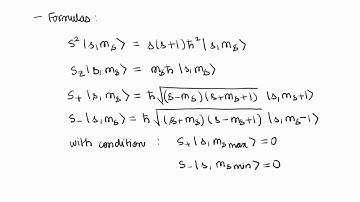 – Formulas :
S² |s,mₛ⟩ = s(s+1)ħ² |s,mₛ⟩
S_z |s,mₛ⟩ = mₛħ |s,mₛ⟩
S₊ |s,mₛ⟩ = ħ √(s-mₛ)(s+mₛ+1) |s,mₛ+1⟩
S₋ |s,mₛ⟩ = ħ √(s+mₛ)(s-mₛ+1) |s,mₛ-1⟩
with condition : S₊ |s,mₛ max⟩ = 0
S₋ |s,mₛ min⟩ = 0